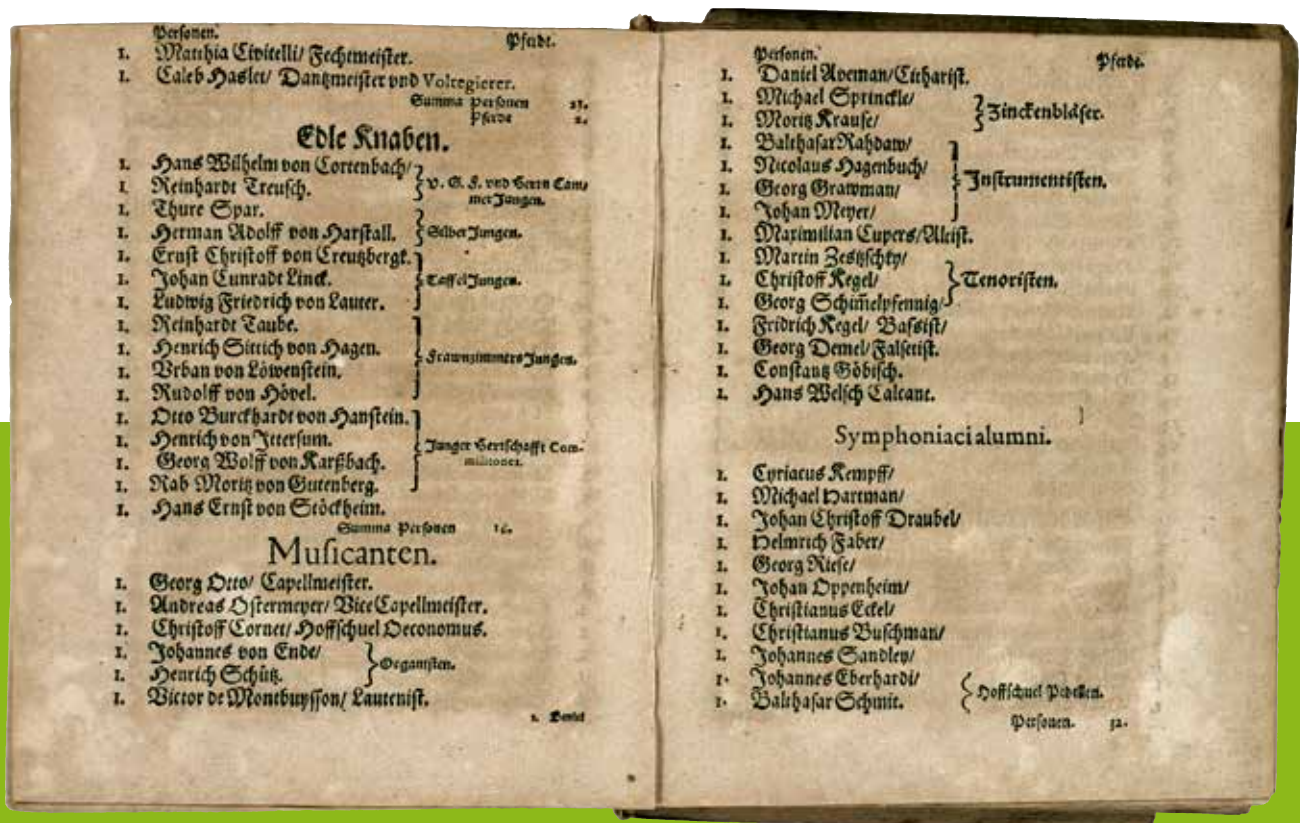 Personen. Pferdt.
1. Matthia Civitelli/ Fechtmeister.
1. Caleb Haslet/ Dantzmeister vnd Voltegierer.
Summa Personen 23.
Pferde 2.
Edle Knaben.
1. Hans Wilhelm von Cortenbach/
1. Reinhardt Treusch.
V. G. F. vnd Herrn Cam/
mer Jungen.
1. Thure Spar.
1. Herman Adolff von Harstall.
Silber Jungen.
1. Ernst Christoff von Creutzbergk.
1. Johan Cunradt Linck.
1. Ludwig Friedrich von Lauter.
Taffel Jungen.
1. Reinhardt Taube.
1. Henrich Sittich von Hagen.
1. Vrban von Löwenstein.
1. Rudolff von Hövel.
Frawnzimmers Jungen.
1. Otto Burckhardt von Hanstein.
1. Henrich von Ittersum.
1. Georg Wolff von Karßbach.
1. Rab Moritz von Gutenberg.
Junger Herrschafft Com-
militones.
1. Hans Ernst von Stöckheim.
Summa Personen 16.
Musicanten.
1. Georg Otto/ Capellmeister.
1. Andreas Ostermeyer/ Vice Capellmeister.
1. Christoff Cornet/ Hoffschuel Oeconomus.
1. Johannes von Ende/
1. Henrich Schütz.
Organisten.
1. Victor de Montbuysson/ Lautenist.
1. Daniel
Personen. Pferde.
1. Daniel Aveman/ Citharist.
1. Michael Sprinckle/
1. Moritz Krause/
Zinckenbläser.
1. Balthasar Rahdaw/
1. Nicolaus Hagenbuch/
1. Georg Grawman/
1. Johan Meyer/
Instrumentisten.
1. Maximilian Cupers/ Altist.
1. Martin Zesitzschky/
1. Christoff Kegel/
1. Georg Schim̃elpfennig/
Tenoristen.
1. Fridrich Kegel/ Bassist/
1. Georg Demel/ Falsetist.
1. Constantz Göbisch.
1. Hans Welsch Calcant.
Symphoniaci alumni.
1. Cyriacus Kempff/
1. Michael Hartman/
1. Johan Christoff Draubel/
1. Helmrich Faber/
1. Georg Riese/
1. Johan Oppenheim/
1. Christianus Eckel/
1. Christianus Buschman/
1. Johannes Sandley/
1. Johannes Eberhardi/
1. Balthasar Schmit.
Hoffschuel Pedellen.
Personen. 32.